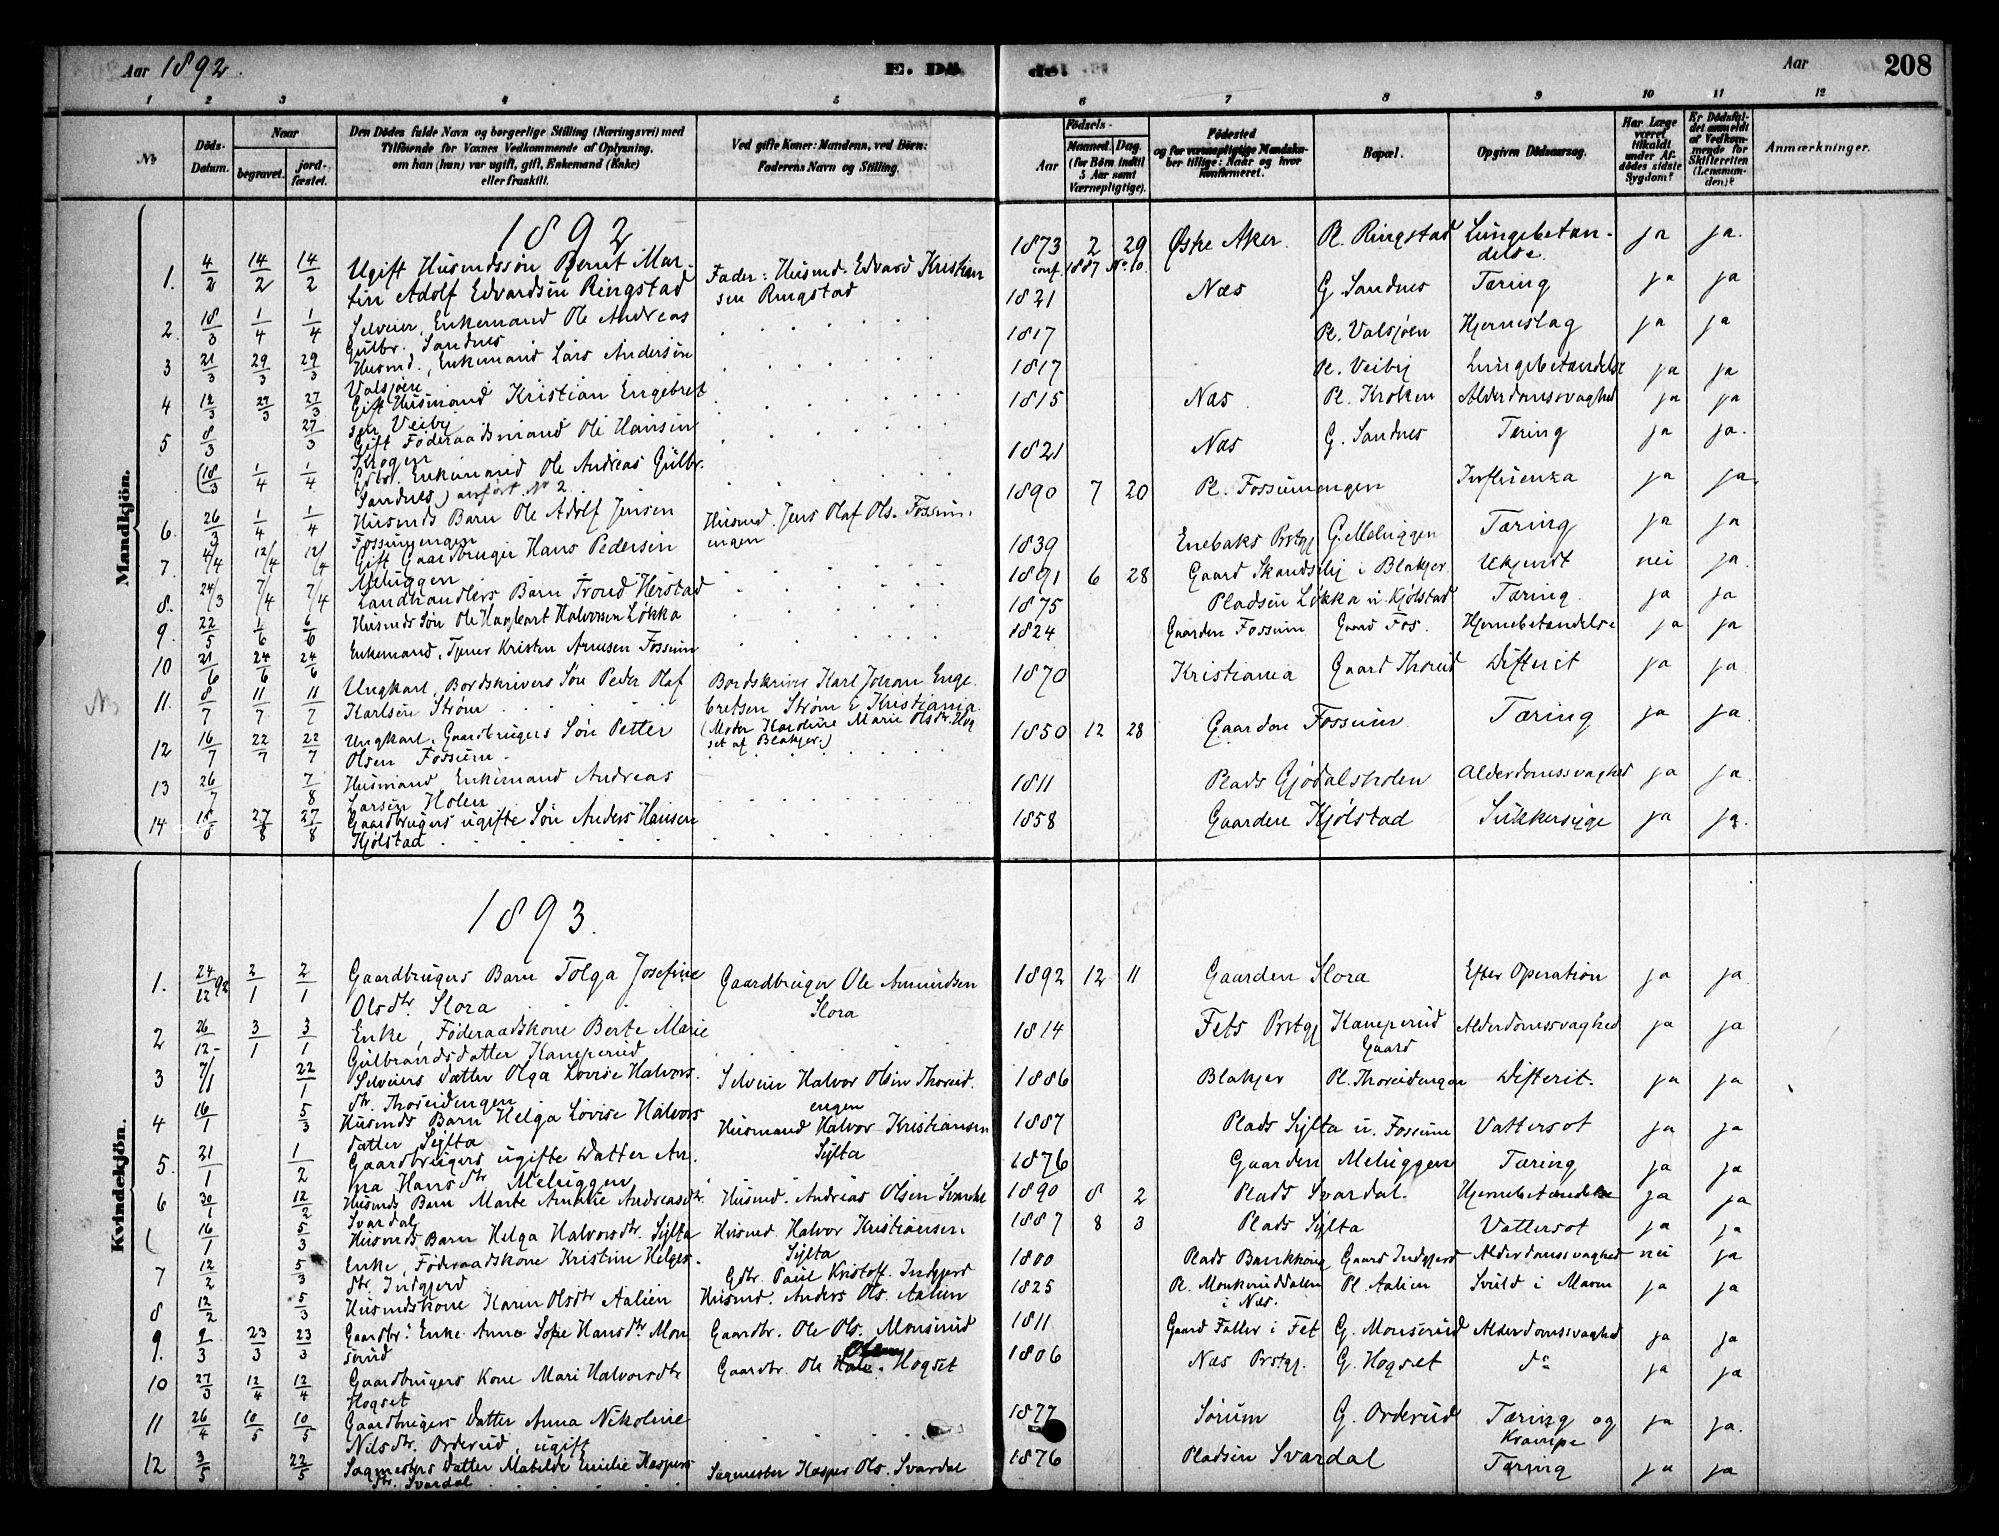 Aar 1892.
E. Dö
de.
Aar
208
1 2 3 4 5 6 7 8 9 10 11 12
No
Döds-Datum.
Naar
begravet.
jord-fæstet.
Den Dödes fulde Navn og borgerlige Stilling (Næringsvei) med
Tilföiende for Voxnes Vedkommende af Oplysning,
om han (hun) var ugift, gift, Enkemand (Enke)
eller fraskilt.
Ved gifte Koner: Mandens, ved Börn:
Faderens Navn og Stilling.
Födsels-
Aar
Maaned. Dag.
(for Börn indtil
5 Aar samt
Værnepligtige).
Födested
og for værnepligtige Mandska-
ber tillige: Naar og hvor
konfirmeret.
Bopæl.
Opgiven Dödsaarsag.
Har Læge
været
tilkaldt
under Af-
dödes sidste
Sygdom?
Er Dödsfal-
det anmeldt
af Vedkom-
mende for
Skifteretten
(Lensman-
den)?
Anmærkninger.
Mandkjön.
1892
1. 4/2 14/2 14/2 Ugift Husmdssøn Bernt Mar- Fader: Husmd. Edvard Kristian 1873 2 29 Østre Aker. Pl. Ringstad Lungebetan- ja ja.
tin Adolf Edvardsen Ringstad sen Ringstad conf. 1887 No 10. delse.
2 18/3 1/4 1/4 Selveier, Enkemand Ole Andreas 1821 Næs G. Sandnes Tæring ja ja
Gulbr. Sandnes
3 21/3 29/3 29/3 Husmd., Enkemand Lars Andersen 1817 Pl. Valsjøen Hjerneslag ja ja
Valsjøen
4 12/3 27/3 27/3 Gift Husmand Kristian Engebret 1817 Pl. Veiby Lungebetændelse ja ja
sen Veiby
5 8/3 27/3 Gift Føderaadsmand Ole Hansen 1815 Næs Pl. Kroken Alderdomssvaghed ja ja
Krogen
(18/3 1/4 1/4 Gdbr. Enkemand Ole Andreas Gulbr. 1821 Næs G. Sandnes Tæring ja ja.
Sandnes) anført No 2
6 26/3 1/4 1/4 Husmds Barn Ole Adolf Jensen Husmd. Jens Olaf Ols. Fossum- 1890 7 20 Pl. Fossumengen Influenza ja ja.
Fossumengen engen
7. 4/4 12/4 12/4 Gift Gaardbruger Hans Pedersen 1839 Enebaks Prstgj G. Meluggen Tæring ja ja
Meluggen
8. 24/3 7/4 7/4 Landhandlers Barn Trond Herstad 1891 6 28 Gaard Skandsby i Blakjer Ukjendt nei ja.
9. 22/5 1/6 6/6 Husmds Søn Ole Hagbart Halvorsen Løkka 1875 Pladsen Løkka u Kjølstad Tæring ja ja
10 21/6 24/6 24/6 Enkemand, Tjener Kristen Arnesen Fossum 1824 Gaarden Fossum Gaard Fos. Hjernebetændelse ja ja
11. 8/7 11/7 11/7 Ungkarl, Bordskrivers Søn Peder Olaf Bordskriver Karl Johan Enge- 1870 Kristiania Gaard Thoreid Difterit ja ja.
Karlsen Strøm bretsen Strøm i Kristiania
12 16/7 22/7 22/7 Ungkarl, Gaardbrugers Søn Petter (Moder Karoline Marie Olsdr. 1850 12 28 Gaarden Fossum Tæring ja ja.
Olsen Fossum. set af Blakjer.)
13 26/7 7/8 Husmand Enkemand Andreas 1811 Plads Gjødalsholen Alderdomssvaghed ja ja.
Larsen Holen
14 18/8 27/8 27/8 Gaardbrugers ugifte Søn Anders Hansen 1858 Gaarden Kjølstad Sukkersyge ja ja.
Kjølstad
Kvindekjön.
1893.
1. 24/12 92 2/1 2/1 Gaardbrugers Barn Tolga Josefine Gaardbruger Ole Amundsen 1892 12 11 Gaarden Slora Efter Operation ja ja.
Olsdtr. Slora Slora
2 26/12 3/1 3/1 Enke, Føderaadskone Berte Marie 1814 Fets Prstgj Kamperud Alderdomssvaghed ja ja
Gulbrandsdatter Kamperud Gaard
3 7/1 22/1 Selveiers datter Olga Lovise Halvors- Selveier Halvor Olsen Thoreid. 1886 Blakjer Pl. Thoreidengen Difterit. ja ja
dtr. Thoreidengen engen
4 16/1 5/3 Husmds Barn Helga Lovise Halvors Husmand Halvor Kristiansen 1887 Plads Sylta u. Fossum Vattersot ja ja
datter Sylta Sylta
5. 21/1 1/2 Gaardbrugers ugifte Datter An- 1876 Gaarden Meluggen Tæring ja ja
na Hansdtr Meluggen
6 30/1 12/2 Husmds Barn Marte Amalie Andreasdtr. Husmd. Andreas Olsen Svardal 1890 8 2 Plads Svardal. Hjernebetændelse ja ja
Svardal
( 16/1 5/3 Husmds Barn Helga Halvorsdtr. Sylta Husmd. Halvor Kristiansen 1887 8 3 Plads Sylta Vattersot ja ja
Sylta
7 12/2 5/3 Enke, Føderaadskone Kristine Helges- Gdbr. Paul Kristoff. Indgjerd 1800 Plads Bankkong Gaard Indgjerd Alderdomssvaghed nei ja
dtr. Indgjerd
8 12/2 5/3 Husmdskone Karen Olsdtr Aalien Husmd. Anders Ols. Aalien 1825 Pl. Monkeruddalen Pl. Aalien Svuld i Maven ja ja
i Næs.
9. 9/3 23/3 23/3 Gaardbr. Enke Anne Sofie Hansdtr. Mon Gaardbr. Ole Ols. Monserud 1811 Gaard Faller i Fet G. Monserud Alderdomssvaghed ja ja
serud
10 27/3 12/4 12/4 Gaardbrugers Kone Mari Halvorsdtr Gaardbr. Ole Olsen Hogset 1806 Næs Prstgj. G. Hogset do ja ja
Hogset
11 26/4 10/5 10/5 Gaardbrugers Datter Anna Nikoline 1877 Sørum G. Orderud Tæring og ja ja.
Nilsdtr. Orderud, ugift Krampe
12 3/5 22/5 Sagmesters Datter Mathilde Emilie Kaspers Sagmester Kasper Ols. Svardal 1876 Pladsen Svardal Tæring ja ja
dtr. Svardal